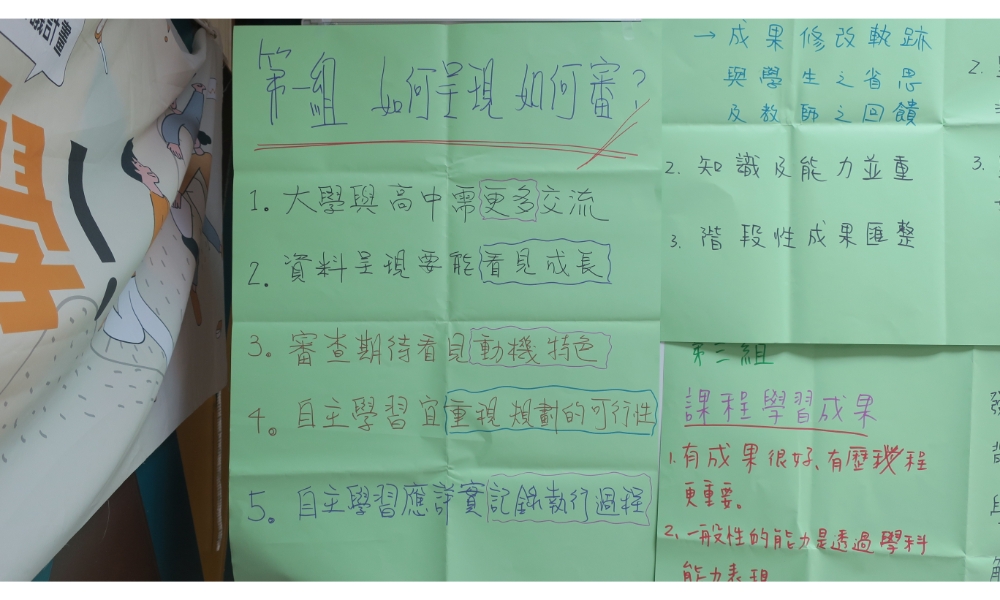 第一組 如何呈現 如何審?
1. 大學與高中需更多交流
2. 資料呈現要能看見成長
3. 審查期待看見動機特色
4. 自主學習宜重視規劃的可行性
5. 自主學習應詳實記錄執行過程
→成果修改軌跡
與學生之省思
及教師之回饋
2. 知識及能力並重
3. 階段性成果匯整
第三組
課程學習成果
1. 有成果很好、有歷程
更重要。
2. 一般性的能力是透過學科
能力表現
2.
3.